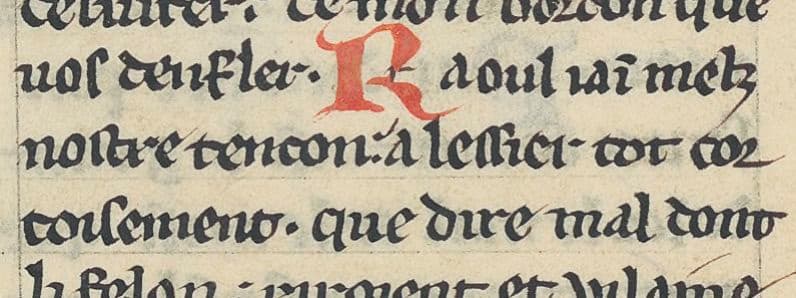 de mon bordon que
uos denfler. Raoul iaī metz
nostre tencon. a lessier tot cor
toisement. que dire mal dont
li felon riroient et uilame